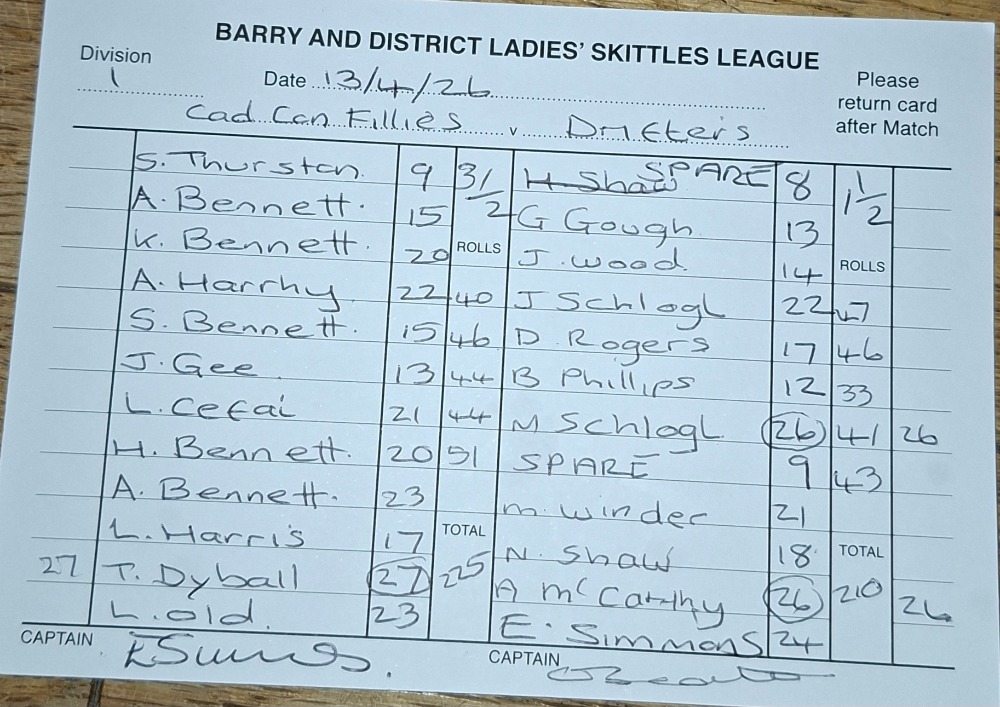 BARRY AND DISTRICT LADIES' SKITTLES LEAGUE
Division 1 Date 13/4/26 Please return card after Match
Cad Can Fillies v Drifters
S. Thurston 9 3 1/2 H Shaw SPARE 8 1 1/2
A. Bennett. 15 G Gough 13
K. Bennett. 20 ROLLS J. Wood 14 ROLLS
A. Harrhy 22 40 J Schlogl 22 47
S. Bennett. 15 46 D. Rogers 17 46
J. Gee 13 44 B Phillips 12 33
L. Cefai 21 44 M Schlogl 26 41 26
H. Bennett. 20 51 SPARE 9 43
A. Bennett. 23 M. Winder 21
L. Harris 17 TOTAL N. Shaw 18 TOTAL
27 T. Dyball 27 225 A McCarthy 26 210 26
L. Old. 23 E. Simmons 24
CAPTAIN CAPTAIN